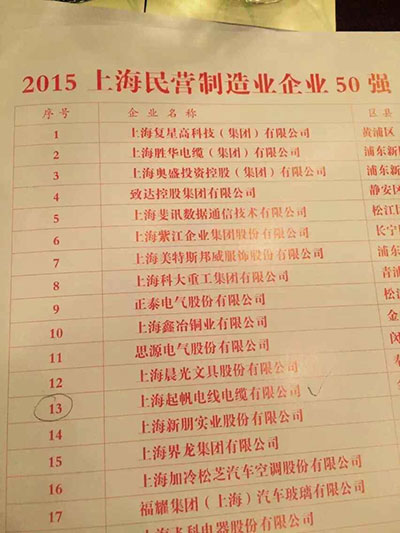 2015 上海民营制造业企业 50 强
序号 企业名称 区县
1 上海复星高科技（集团）有限公司 黄浦区
2 上海胜华电缆（集团）有限公司 浦东新
3 上海奥盛投资控股（集团）有限公司 浦东新
4 致达控股集团有限公司 静安区
5 上海斐讯数据通信技术有限公司 松江
6 上海紫江企业集团股份有限公司 长宁
7 上海美特斯邦威服饰股份有限公司 浦东
8 上海科大重工集团有限公司
9 正泰电气股份有限公司 松江
10 上海鑫冶铜业有限公司 金
11 思源电气股份有限公司
12 上海晨光文具股份有限公司
13 上海起帆电线电缆有限公司
14 上海新朋实业股份有限公司
15 上海界龙集团有限公司
16 上海加冷松芝汽车空调股份有限公司
17 福耀集团（上海）汽车玻璃有限公司